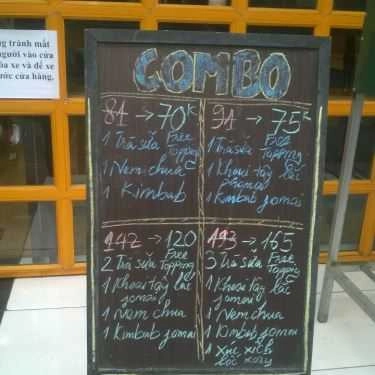 ng tránh mất
người vào cửa
ỏa xe và để xe
ước cửa hàng.
COMBO
84 → 70K
1 Trà sữa Free Topping
1 Nem chua
1 Kimbab
94 → 75K
1 Trà sữa Free Topping
1 Khoai tây lắc
jomai
1 Kimbab jomai
142 → 120
2 Trà sữa Free Topping
1 Khoai tây lắc
jomai
1 Nem chua
1 Kimbab jomai
193 → 165
3 Trà sữa Free Topping
1 Khoai tây lắc
jomai
1 Nem chua
1 Kimbab jomai
1 Xúc xích
lốc xoáy